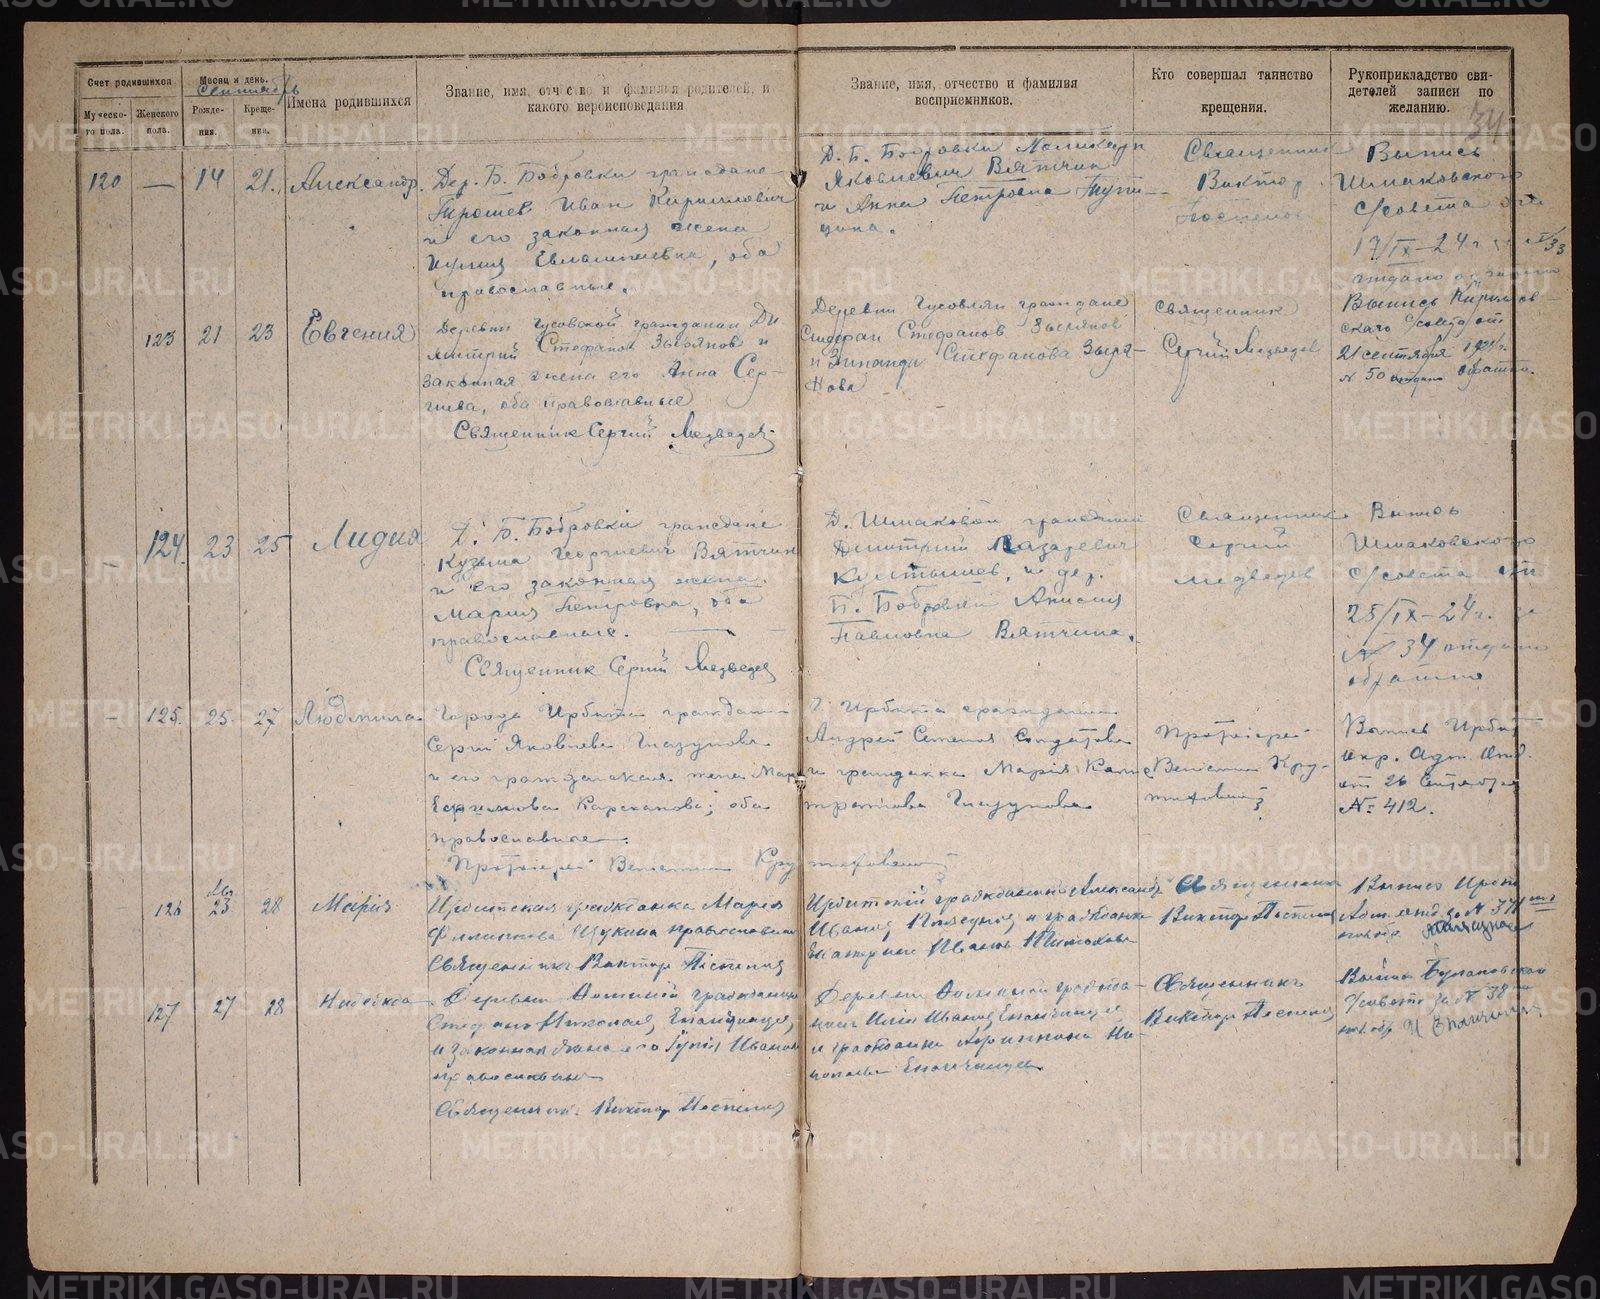 Счет родившихся
Месяц и день.
Сентябрь
Имена родившихся
Звание, имя, отчество и фамилия родителей, и
какого вероисповедания
Звание, имя, отчество и фамилия
восприемников.
Кто совершал таинство
крещения.
Рукоприкладство сви-
детелей записи по
желанию.
34
Мужеско-
го пола.
Женского
пола.
Рожде-
ния.
Креще-
ния.
120 — 14 21. Александр.
Дер. Б. Бобровки граждане
Трошев Иван Кириллович
и его законная жена
Евлампиевна, оба
православные.
Д. Б. Бобровки Поликарп
Яковлевич Вятчин
и Анна Петровна Тупи-
цына.
Священник
Виктор
Поспелов
Выпись
Шмаковского
с/совета от
17/IX-24 г. за № 33
123 21 23 Евгения
Деревни Чусовской гражданин Ди
митрий Стефанов Зырянов и
законная жена его Анна Сер-
гиева, оба православные
Священник Сергий Медведев
Деревни Чусовляны граждане
Стефанов Зырянов
и Зинаида Стефанова Зыря-
нова
Священник
Сергий Медведев
Выпись Кирилов-
скаго с/совета от
21 сентября 1924 г.
№ 50 отдано обратно.
— 124. 23 25 Лидия
Д. Б. Бобровки граждане
Кузьма Георгиевич Вятчин
и его законная жена
Мария Петровна, оба
православные.
Священник Сергий Медведев
Д. Шмаковой гражданин
Димитрий Лазаревич
Култышев, и дер.
Б. Бобровки Анисия
Павловна Вятчина.
Священник
Сергий
Медведев
Выпись
Шмаковского
с/совета от
25/IX-24 г. за
№ 34 отдано
обратно
— 125. 25 27 Людмила
Города Ирбита граждани
Сергий Яковлев Глазунов
и его гражданская жена Мар
Карсканова; оба
православные.
Протоиерей Вениамин Крутиховский
г. Ирбита гражданин
Андрей Семенов Солдатов
и гражданка Мария
Глазунова
Протоиерей
Вениамин Кру-
тиховский
Выпись Ирбит
окр. Адм. Отд.
от 26 Сентября
№ 412.
126 23 28 Мария
Ирбитская гражданка Мария
Филиппова Щукина православная
Священник Виктор Поспелов
Ирбитский гражданин Александр
Иванов и гражданка
Екатерина Иванов Тимохова
Священник
Виктор Поспелов
Выпись Ирбит
Адм. отд. за № 371
127 27 28 Надежда
Деревни граждане
Стефан Николаев Епанчинцев,
и законная жена его Юлия Иванов
православные
Священник Виктор Поспелов
Деревни гражда-
нин Илия Иванов Епанчинцев
и гражданка Агриппина Ни-
колаева Епанчинцев
Священник
Виктор Поспелов
за № 38